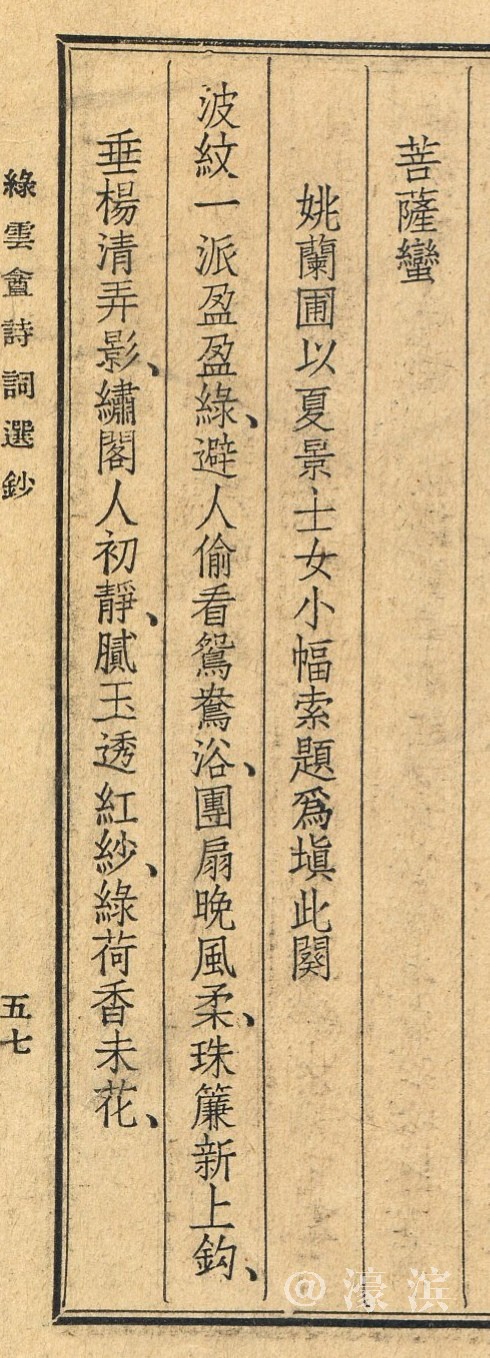 菩薩蠻
姚蘭圃以夏景士女小幅索題爲塡此闋
波紋一派盈盈綠、避人偷看鴛鴦浴、團扇晚風柔、珠簾新上鈎、
垂楊清弄影、繡閣人初靜、膩玉透紅紗、綠荷香未花、
綠雲盦詩詞選鈔
五七
@濠滨